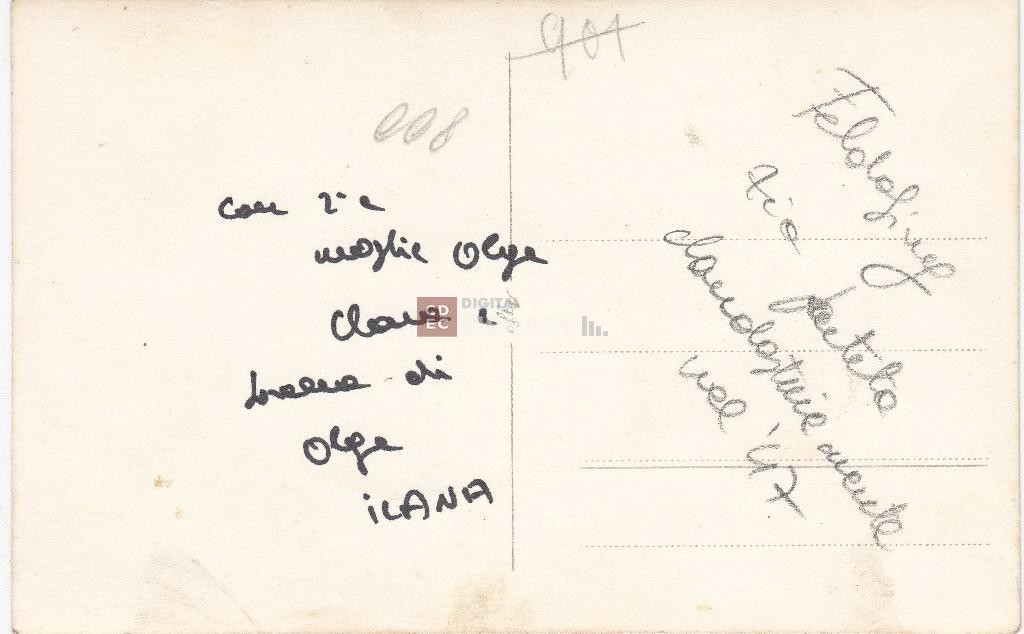 901
008
con 2a
moglie Olga
Clara e
di
Olga
ILANA
Feldafing
zio partito
clandestinamente
nel '47
CDEC DIGITAL LIBRARY